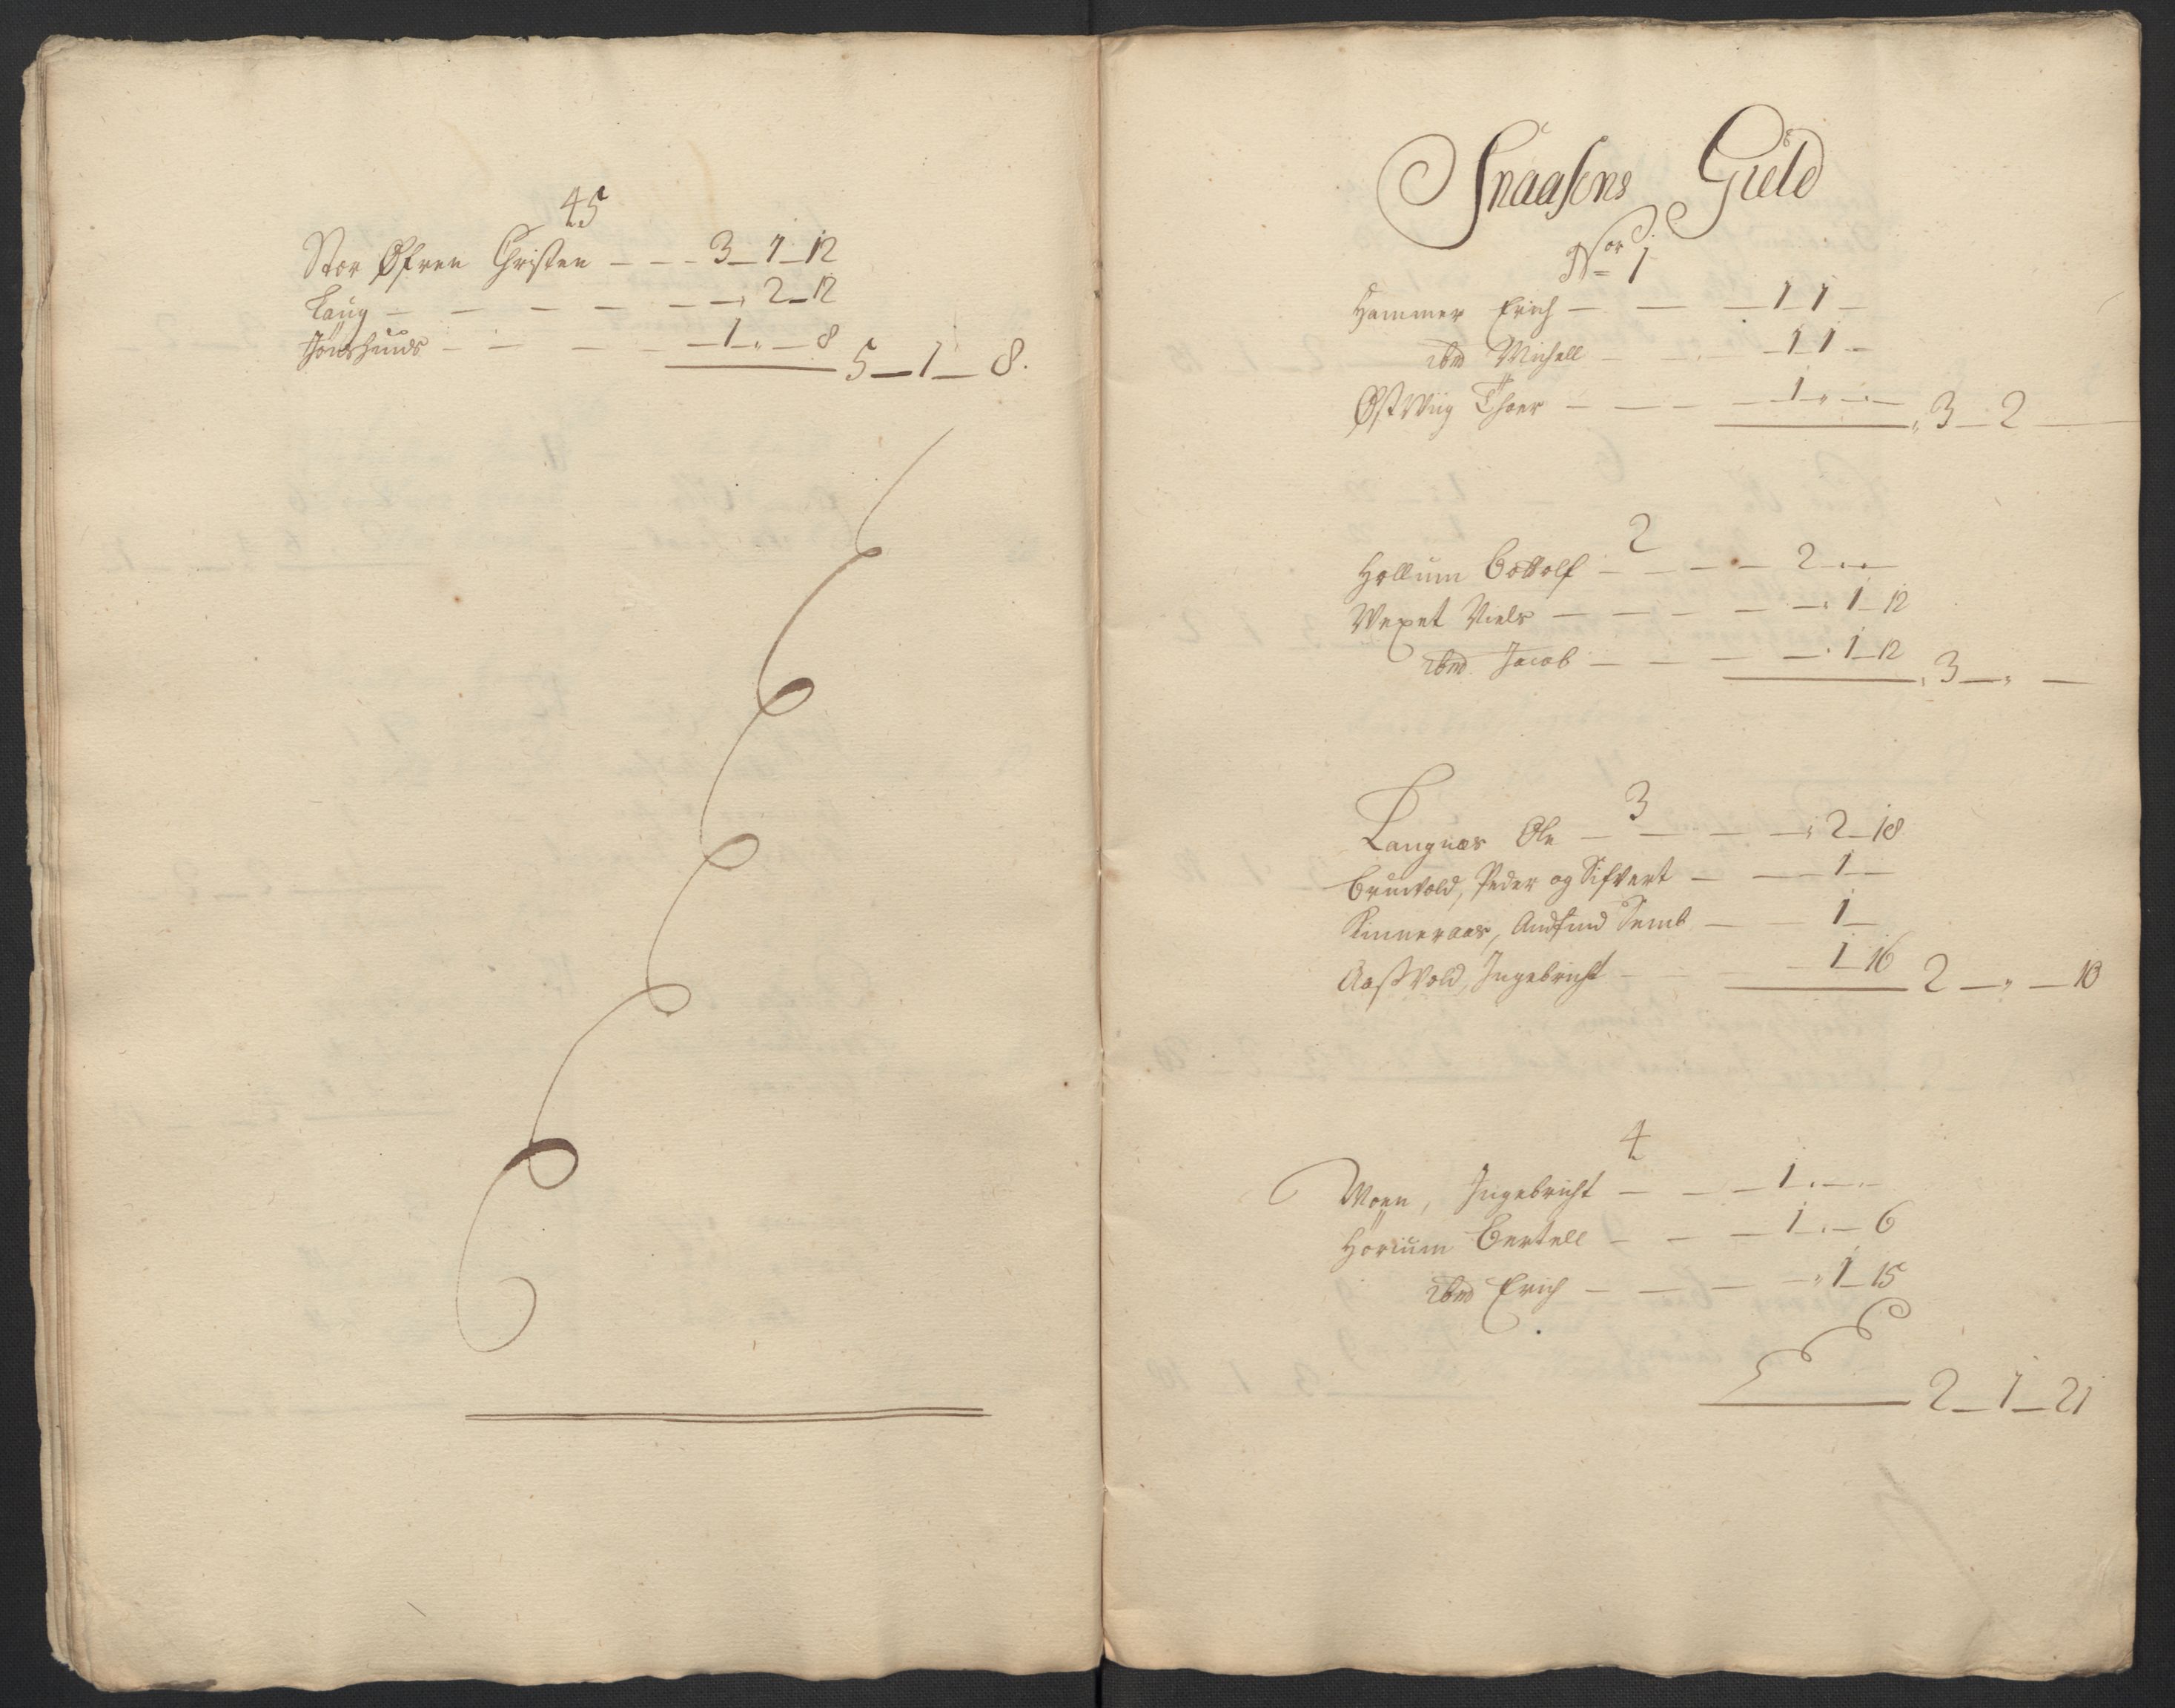 45
Stor Øfren Christen — — — 3 — 1 — 12
Laug — — — — — — " 2 — 12
— — — — 1 " — 8
5 — 1 — 8.
Snaasens Gield
Nor 1
Hammer Erich — — — 1 1 —
ibm Michell — — — 1 1 —
Østwiig Thoer — — — — 1 " — " —
" 3 — 2 —
2
Hollum Bottolf — — — — 2 " "
Wexet Niels — — — — — " 1 — 12
ibm Jacob — — — — " 1 — 12
" 3 — " —
3
Langnæs Ole — — — — " 2 — 18
Brunvold, Peder og Sifvert — — 1 —
Kinneraas, Amund Semb — — 1 —
Aasvold, Ingebricht — — 1 — 16
2 — " — 10
4
Moen, Ingebricht — — — 1 " — "
Hörium Bertell — — — 1 " — 6
ibm Erich — — — — " 1 — 15
2 — 1 — 21